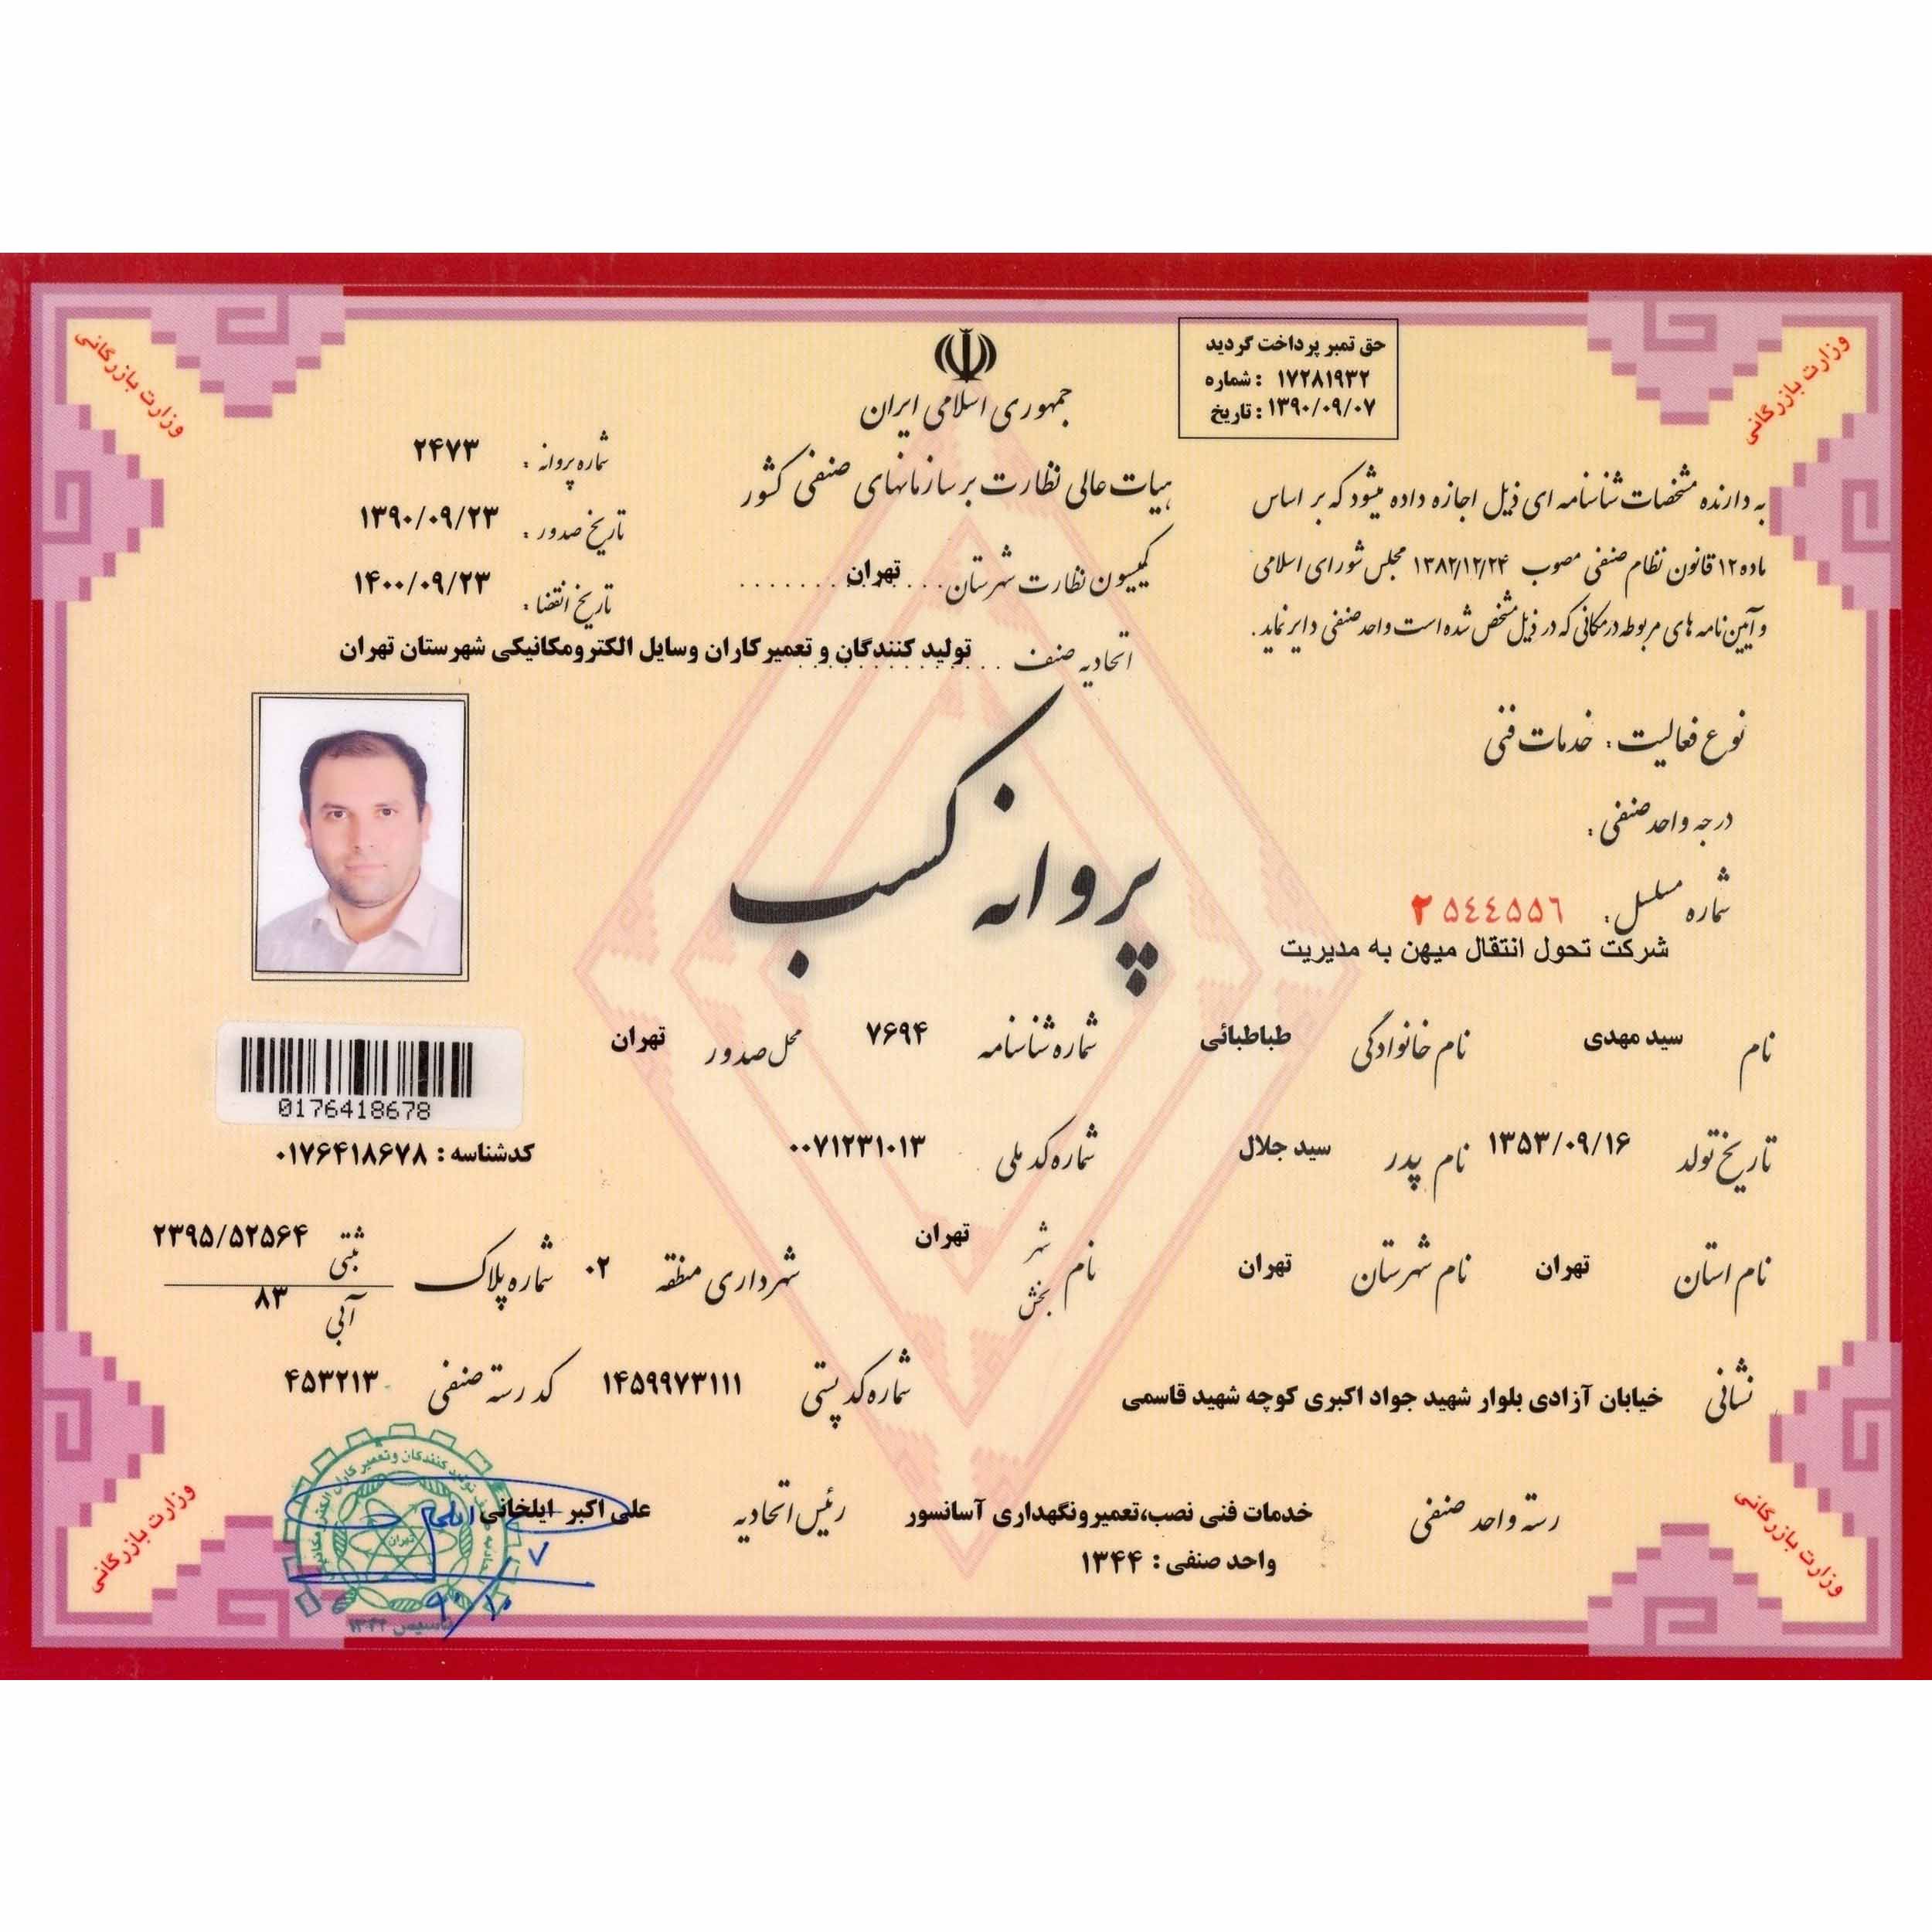 وزارت بازرگانی
وزارت بازرگانی
حق تمبر پرداخت گردید
شماره : ۱۷۲۸۱۹۳۲
تاریخ : ۱۳۹۰/۰۹/۰۷
جمهوری اسلامی ایران
هیات عالی نظارت بر سازمانهای صنفی کشور
کمیسیون نظارت شهرستان تهران
اتحادیه صنف تولید کنندگان و تعمیرکاران وسایل الکترومکانیکی شهرستان تهران
شماره پروانه : ۲۴۷۳
تاریخ صدور : ۱۳۹۰/۰۹/۲۳
تاریخ انقضا : ۱۴۰۰/۰۹/۲۳
به دارنده مشخصات شناسنامه ای ذیل اجازه داده میشود که بر اساس
ماده ۱۲ قانون نظام صنفی مصوب ۱۳۸۲/۱۲/۲۴ مجلس شورای اسلامی
و آیین نامه های مربوطه در مکانی که در ذیل مشخص شده است واحد صنفی دایر نماید.
نوع فعالیت : خدمات فنی
درجه واحد صنفی :
شماره مسلسل : ۲ ۵۴۴۵۵۶
شرکت تحول انتقال میهن به مدیریت
پروانه کسب
نام سید مهدی نام خانوادگی طباطبائی شماره شناسنامه ۷۶۹۴ محل صدور تهران
0176418678
تاریخ تولد ۱۳۵۳/۰۹/۱۶ نام پدر سید جلال شماره کد ملی ۰۰۷۱۲۳۱۰۱۳ کدشناسه : ۰۱۷۶۴۱۸۶۷۸
نام استان تهران نام شهرستان تهران نام شهر تهران بخش شهرداری منطقه ۰۲ شماره پلاک ثبتی ۲۳۹۵/۵۲۵۶۴
آبی ۸۳
نشانی خیابان آزادی بلوار شهید جواد اکبری کوچه شهید قاسمی شماره کد پستی ۱۴۵۹۹۷۳۱۱۱ کد رسته صنفی ۴۵۳۲۱۳
رسته واحد صنفی خدمات فنی نصب،تعمیر ونگهداری آسانسور رئیس اتحادیه علی اکبر ایلخانی
واحد صنفی : ۱۳۴۴
تهران
تاسیس ۱۳۴۴
وزارت بازرگانی
وزارت بازرگانی